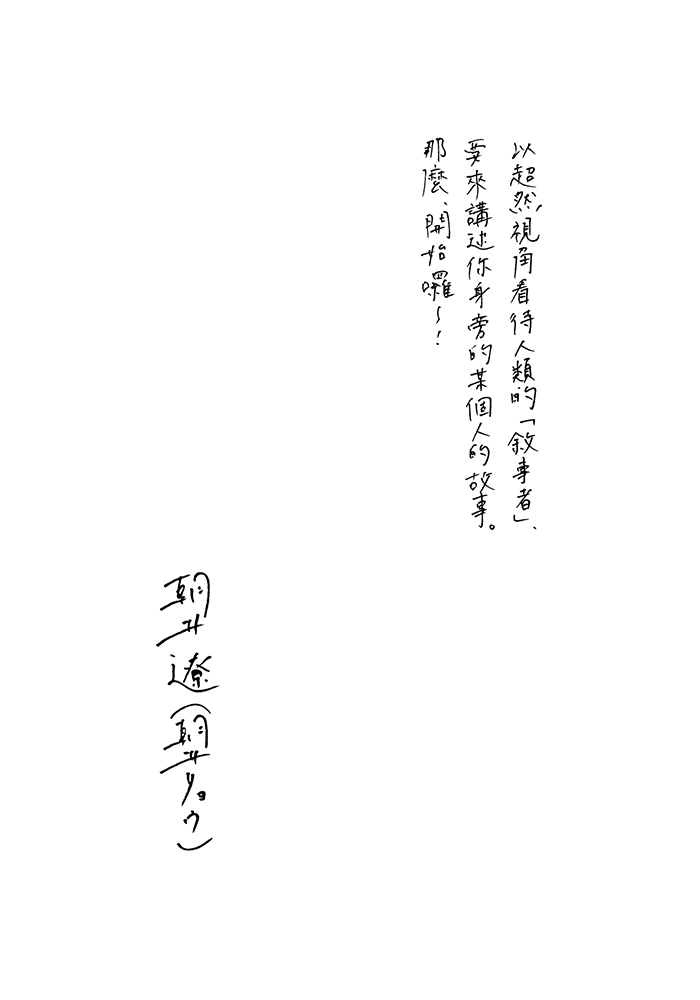 以超然視角看待人類的「敘事者」、
要來講述你身旁的某個人的故事。
那麼、開始囉～！
朝井遼（朝井リョウ）